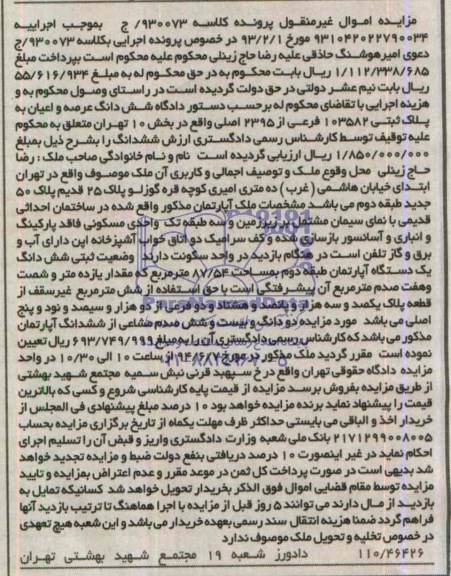 مزایده اموال غیرمنقول پرونده کلاسه ۹۳۰۰۷۳/ ج بموجب اجراییه
۹۳۱۰۴۲۰۲۲۷۹۰۰۳۴ مورخ ۹۳/۲/۱ در خصوص پرونده اجرایی بکلاسه ۹۳۰۰۷۳/ج
دعوی امیرهوشنگ حاذقی علیه رضا حاج زینلی محکوم علیه محکوم است بپرداخت مبلغ
۱/۱۱۲/۳۳۸/۶۸۵ ریال بابت محکوم به در حق محکوم له به مبلغ ۵۵/۶۱۶/۹۳۴
ریال بابت نیم عشر دولتی در حق دولت گردیده است در راستای وصول محکوم به و
هزینه اجرایی با تقاضای محکوم له برحسب دستور دادگاه شش دانگ عرصه و اعیان به
پلاک ثبتی ۱۰۳۵۸۲ فرعی از ۲۳۹۵ اصلی واقع در بخش ۱۰ تهران متعلق به محکوم
علیه توقیف توسط کارشناس رسمی دادگستری ارزش ششدانگ را بشرح ذیل بمبلغ
۱/۸۵۰/۰۰۰/۰۰۰ ریال ارزیابی گردیده است نام و نام خانوادگی صاحب ملک : رضا
حاج زینلی محل وقوع ملک و توصیف اجمالی و کاربری آن ملک موصوف واقع در تهران
ابتدای خیابان هاشمی (غرب) ده متری امیری کوچه قره گوزلو پلاک ۲۵ قدیم پلاک ۵۰
جدید طبقه دوم می باشد مشخصات ملک آپارتمان مذکور واقع شده در ساختمان احداثی
قدیمی با نمای سیمان مشتمل بر زیرزمین و سه طبقه تک واحدی مسکونی فاقد پارکینگ
و انباری و آسانسور بازسازی شده و کف سرامیک دو اتاق خواب آشپزخانه اپن دارای آب و
برق و گاز تلفن است در هنگام بازدید در واحد سکونت دارند وضعیت ثبتی شش دانگ
یک دستگاه آپارتمان طبقه دوم بمساحت ۸۷/۵۴ مترمربع که مقدار یازده متر و شصت
وهفت صدم مترمربع آن پیشرفتگی است با حق استفاده از شش مترمربع غیرسقف از
قطعه پلاک یکصد و سه هزار و پانصد و هشتاد و دو فرعی از دو هزار و سیصد و نود و پنج
اصلی می باشد مورد مزایده دو دانگ و بیست و شش صدم مشاعی از ششدانگ آپارتمان
مذکور می باشد که کارشناس رسمی دادگستری آن را به مبلغ ۶۹۳/۷۴۹/۹۹۹ ریال تعیین
نموده است مقرر گردید ملک مذکور در مورخ ۹۴/۶/۷ از ساعت ۱۰ الی ۱۰/۳۰ در واحد
مزایده دادگاه حقوقی تهران واقع در خ سپهبد قرنی نبش سمیه مجتمع شهید بهشتی
از طریق مزایده بفروش برسد مزایده از قیمت پایه کارشناسی شروع و کسی که بالاترین
قیمت را پیشنهاد نماید برنده مزایده خواهد بود ۱۰ درصد مبلغ پیشنهادی فی المجلس از
خریدار اخذ و الباقی می بایستی حداکثر ظرف مهلت یکماه از تاریخ برگزاری مزایده بحساب
۲۱۷۱۲۹۹۰۰۸۰۰۵ بانک ملی شعبه وزارت دادگستری واریز و قبض آن را تسلیم اجرای
احکام نماید در غیر اینصورت ۱۰ درصد دریافتی بنفع دولت ضبط و مزایده تجدید خواهد
شد بدیهی است در صورت پرداخت کل ثمن در موعد مقرر و عدم اعتراض بمزایده و تایید
مزایده توسط مقام قضایی اموال فوق الذکر بخریدار تحویل خواهد شد کسانیکه تمایل به
بازدید از مال دارند می توانند ۵ روز قبل از مزایده با اجرا هماهنگ تا ترتیب بازدید آنها
فراهم گردد ضمنا هزینه انتقال سند رسمی بعهده خریدار می باشد و این شعبه هیچ تعهدی
در خصوص تخلیه و تحویل ملک موصوف ندارد
۱۱۰/۴۶۴۲۶ دادورز شعبه ۱۹ مجتمع شهید بهشتی تهران